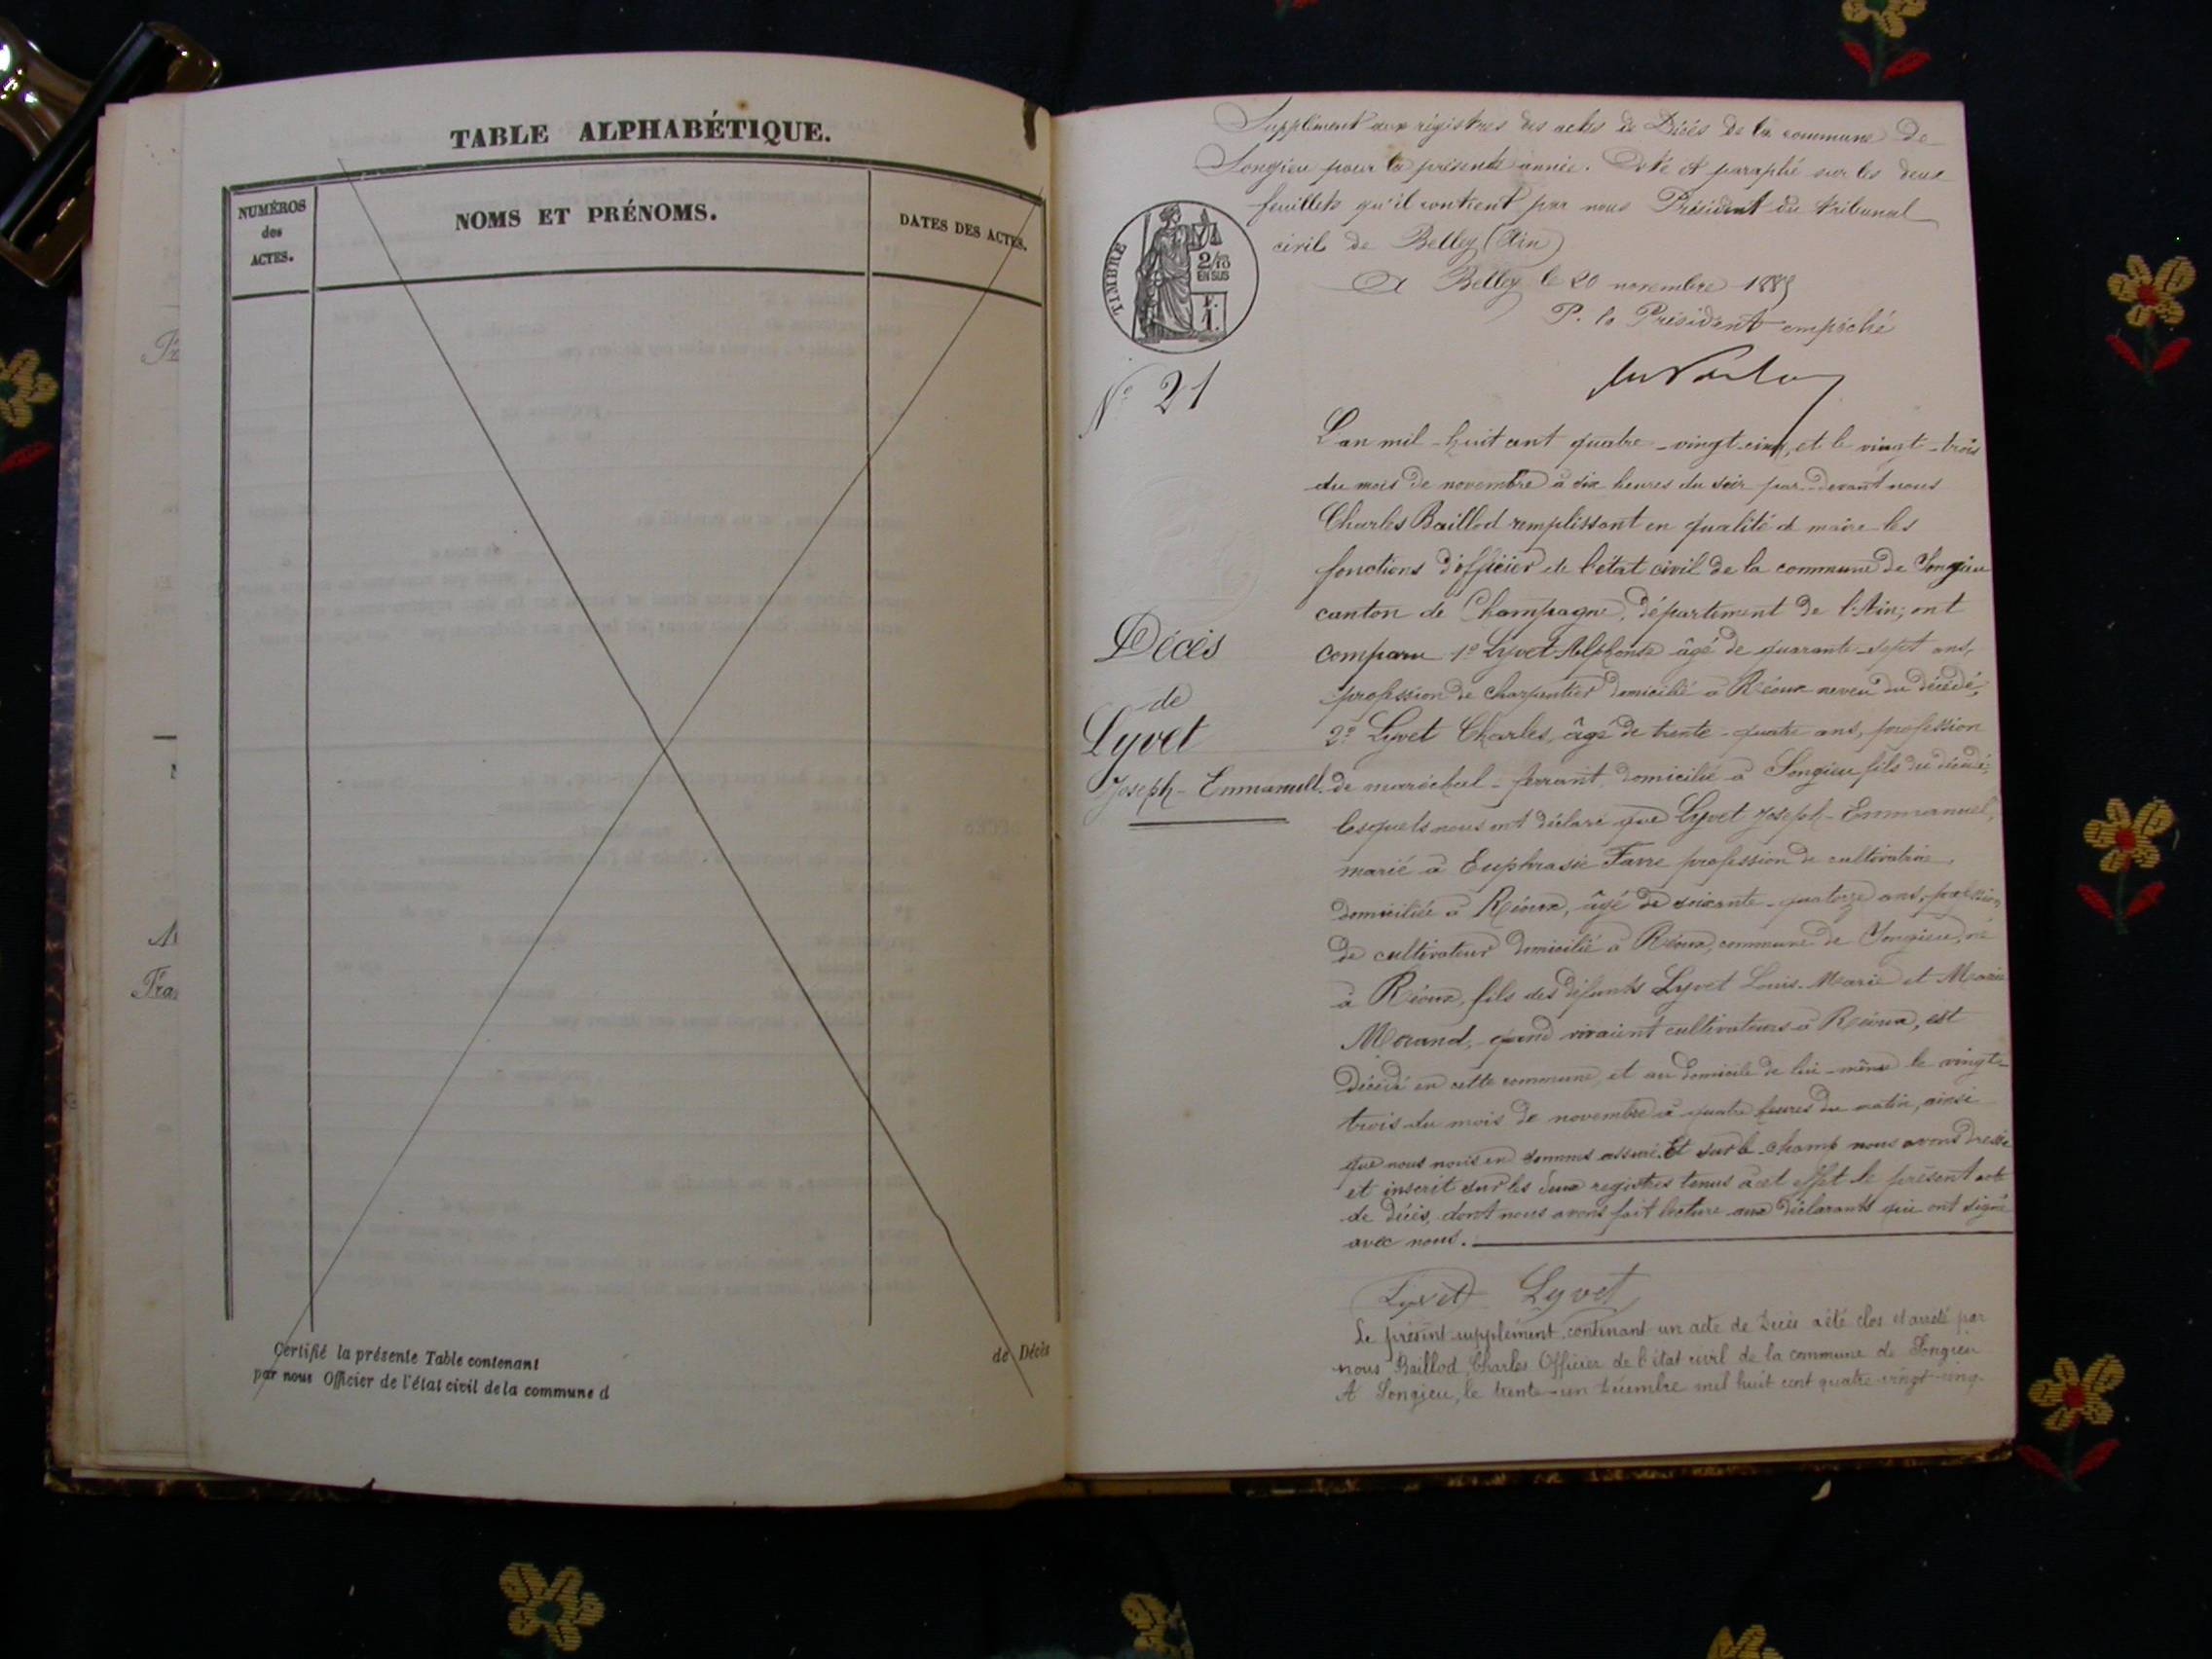 TABLE ALPHABÉTIQUE.
NUMÉROS
des
ACTES.
NOMS ET PRÉNOMS.
DATES DES ACTES.
Certifié la présente Table contenant
de Décès
par nous Officier de l'état civil de la commune d
Supplément aux régistres des actes de Décès de la commune de
Songieu pour la présente année. Coté et paraphé sur les deux
feuillets qu'il contient par nous Président du tribunal
civil de Belley (Ain)
A Belley le 20 novembre 1885
P. le Président empêché
TIMBRE
2/10
EN SUS
F.
1.
N° 21
Décès
de
Lyvet
Joseph-Emmanuel.
L'an mil-huit cent quatre-vingt-cinq, et le vingt-trois
du mois de novembre à six heures du soir par-devant nous
Charles Baillod remplissant en qualité de maire les
fonctions d'officier de l'état civil de la commune de Songieu
canton de Champagne, département de l'Ain; ont
comparu 1° Lyvet Alphonse âgé de quarante-sept ans,
profession de charpentier domicilié à Réoux neveu du décédé,
2° Lyvet Charles, âgé de trente-quatre ans, profession
de maréchal-ferrant, domicilié à Songieu fils du décédé;
lesquels nous ont déclaré que Lyvet Joseph-Emmanuel,
marié à Euphrasie Favre profession de cultivatrice,
domiciliée à Réoux, âgé de soixante-quatorze ans, profession
de cultivateur domicilié à Réoux, commune de Songieu, né
à Réoux, fils des défunts Lyvet Louis-Marie et Marie
Morand, quand vivaient cultivateurs à Réoux, est
décédé en cette commune, et au domicile de lui-même le vingt-
trois du mois de novembre à quatre heures du matin, ainsi
que nous nous en sommes assuré. Et sur le champ nous avons dressé
et inscrit sur les deux registres tenus à cet effet le présent acte
de décès, dont nous avons fait lecture aux déclarants qui ont signé
avec nous.
Lyvet Lyvet
Le présent supplément contenant un acte de Décès a été clos et arrêté par
nous Baillod, Charles Officier de l'état civil de la commune de Songieu
A Songieu, le trente-un décembre mil huit cent quatre-vingt-cinq.